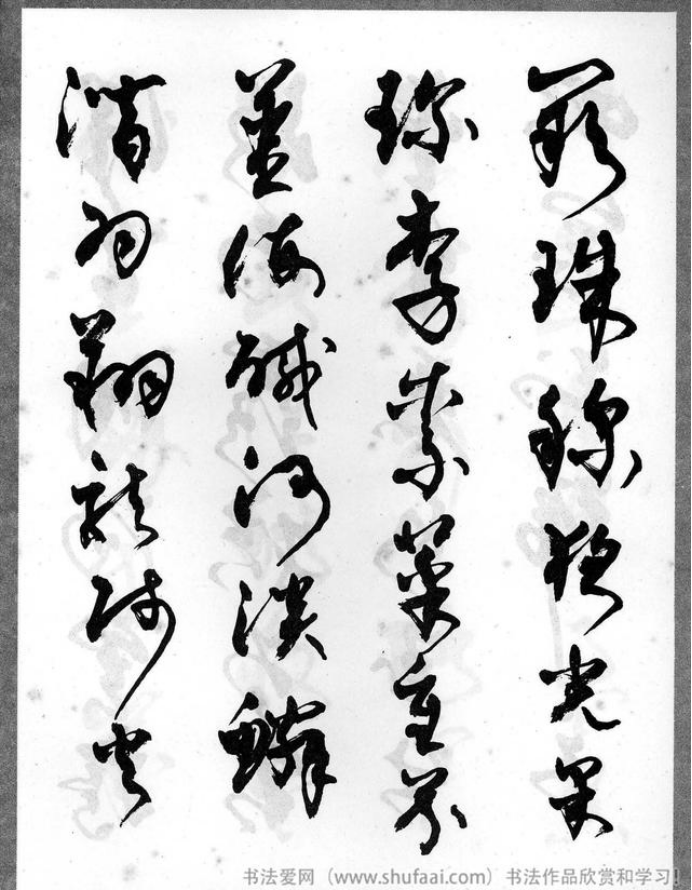 闕珠稱夜光果
珍李柰菜重芥
薑海鹹河淡鱗
潛羽翔龍師火
书法爱网（www.shufaai.com）书法作品欣赏和学习！